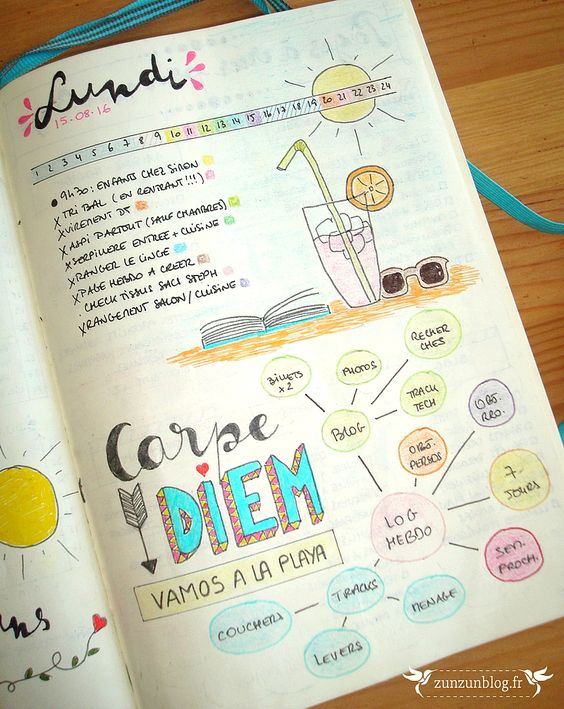 Lundi
15-08-16
1 2 3 4 5 6 7 8 9 10 11 12 13 14 15 16 17 18 19 20 21 22 23 24
● 9H30 : ENFANTS CHEZ SIRON
X TRI BAL (EN RENTRANT !!!)
X VIREMENT DT
X ASPI PARTOUT (SAUF CHAMBRES)
X SERPILLERE ENTREE + CUISINE
X RANGER LE LINGE
X PAGE HEBDO A CREER
· CHECK TISSUS SACS STEPH
X RANGEMENT SALON / CUISINE
RECHER
CHES
PHOTOS
BILLETS
x2
TRACK
TECH
BLOG
OBJ.
PRO.
OBJ.
PERSOS
7-
JOURS
LOG
HEBDO
SEM.
PROCH.
TRACKS
MENAGE
COUCHERS
LEVERS
Carpe
DIEM
VAMOS A LA PLAYA
zunzunblog.fr